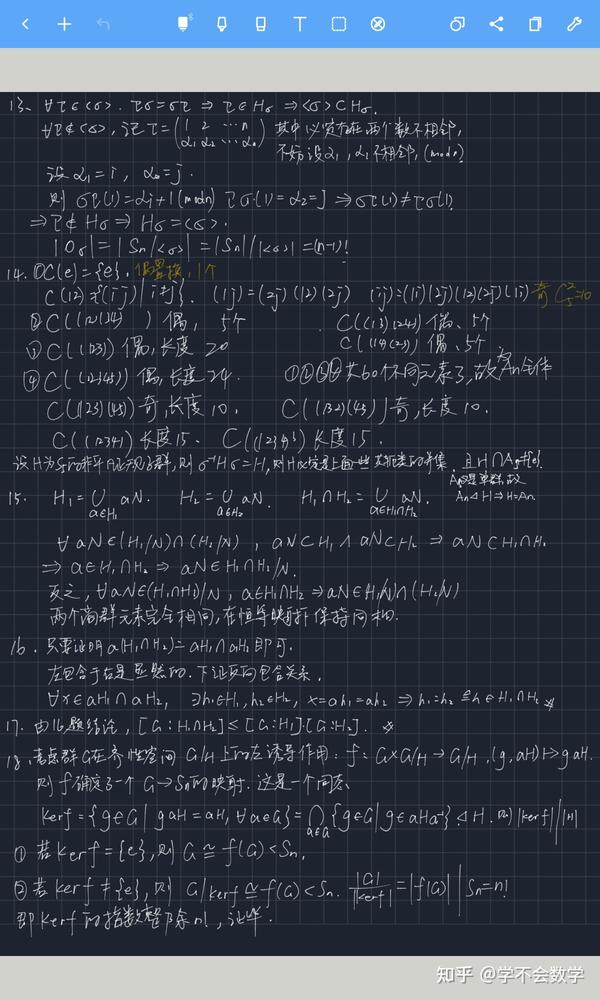 13、∀τ∈<σ>. τσ=στ ⇒ τ∈Hσ ⇒<σ>⊂Hσ.
∀τ∉<σ>, 记τ=(1 2 … n / α₁ α₂ … αₙ) 其中必定存在两个数不相邻,
不妨设α₁, α₂不相邻, (mod n)
设 α₁=i, α₂=j.
则 στ(1)=i+1(mod n) τσ(1)=α₂=j ⇒στ(1)≠τσ(1)
⇒τ∉Hσ ⇒ Hσ=<σ>.
|Oσ|=|Sn/<σ>|=|Sn|/|<σ>|=(n-1)!
14. ①C(e)={e}. 偶置换, 1个
C(12)={(ij)|i≠j}. (1j)=(2j)(12)(2j) (ij)=(1i)(2j)(12)(2j)(1i) 奇 C₅²=10
②C((12)(34)) 偶, 5个 C((13)(24)) 偶、5个
③C((123)) 偶, 长度 20 C((14)(23)) 偶、5个
④C((12345)) 偶, 长度24. ①②③④共60个不同元素了, 故为An全体
C((123)(45)) 奇, 长度10. C((132)(45)) 奇, 长度10.
C((1234)) 长度15. C((1243)) 长度15.
设H为Sn的非平凡正规子群, 则σ⁻¹Hσ=H, 则H必定是上面一些共轭类的并集. 且H∩An≠{e}.
An是单群, 故
An◁H⇒H=An.
15. H₁=∪ aN. H₂=∪ aN. H₁∩H₂=∪ aN.
a∈H₁ a∈H₂ a∈H₁∩H₂
∀aN∈(H₁/N)∩(H₂/N), aN⊂H₁∧aN⊂H₂ ⇒ aN⊂H₁∩H₂
⇒ a∈H₁∩H₂ ⇒ aN∈H₁∩H₂/N.
反之, ∀aN∈(H₁∩H₂)/N, a∈H₁∩H₂ ⇒aN∈(H₁/N)∩(H₂/N)
两个商群元素完全相同, 在恒等映射下保持同构.
16. 只要证明a(H₁∩H₂)=aH₁∩aH₂即可.
左包含于右是显然的. 下证反向包含关系.
∀x∈aH₁∩aH₂, ∃h₁∈H₁, h₂∈H₂, x=ah₁=ah₂ ⇒h₁=h₂≜h∈H₁∩H₂
17. 由16题结论, [G:H₁∩H₂]≤[G:H₁]·[G:H₂].
18、考虑群G在齐性空间G/H上的左诱导作用: f: G×G/H→G/H, (g, aH)↦gaH.
则f确定了一个G→Sn的映射. 这是一个同态
Kerf={g∈G|gaH=aH, ∀a∈G}=∩{g∈G|g∈aHa⁻¹}◁H. 则|Kerf|||H|
a∈G
①若Kerf={e}, 则G≅f(G)<Sn.
②若Kerf≠{e}, 则G/Kerf≅f(G)<Sn. |G|/|Kerf|=|f(G)| | Sn=n!
即Kerf的指数整除n!, 证毕.
知乎 @学不会数学